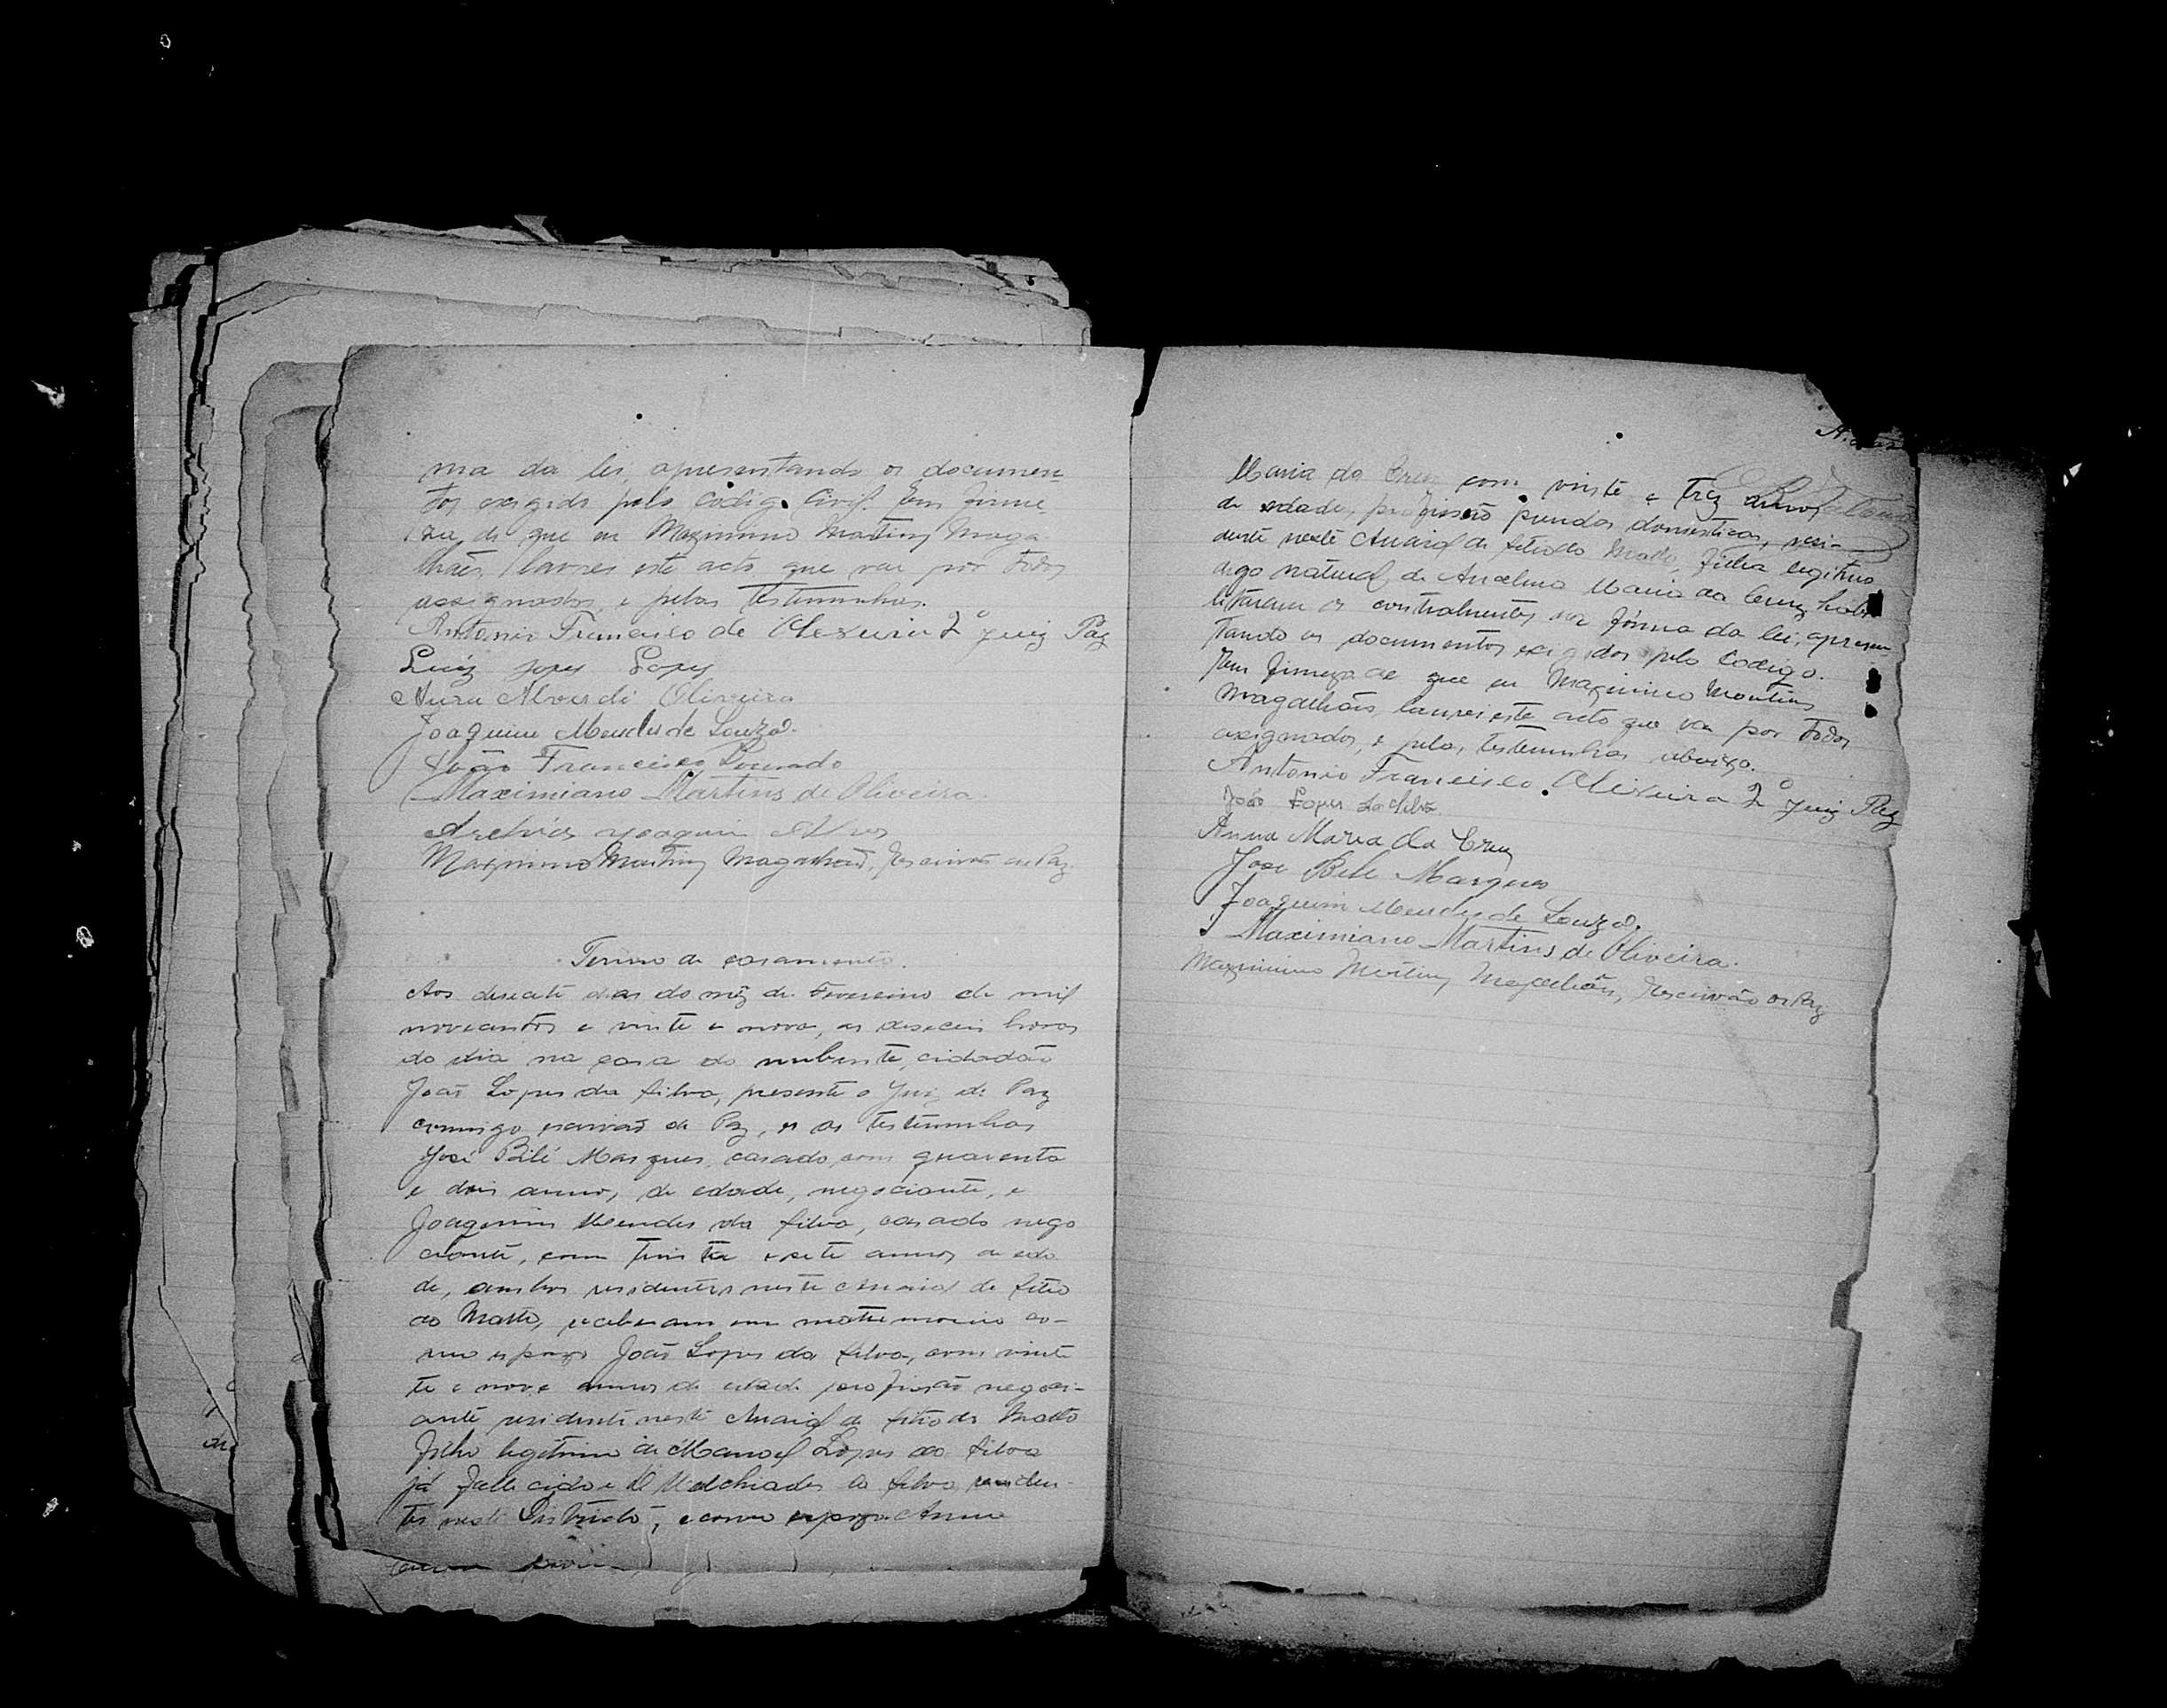 ma da lei, apresentando os documen-
tos exigido pelo Codigo Civil. Em firme
za de que eu Maximino Martins Maga
lhães, lavrei este acto que vai por todos
assignados, e pelas testemunhas.
Antonio Francisco de Oliveira 2º Juiz Paz
Luiz Lopes
Alves de Oliveira
Joaquim Mendes de Souza.
João Francisco Dourado
Maximiano Martins de Oliveira.
Joaquim Alves
Maximino Martins Magalhães, Escrivão de Paz
Termo de casamento.
Aos desecete dias do mêz de Fevereiro de mil
novecentos e vinte e nove, as deseceis horas
do dia na casa do nubente, cidadão
João Lopes da Silva, presente o Juiz de Paz
commigo escrivão de Paz, e as testemunhas
José Bilé Marques, casado, com quarenta
e dois annos, de edade, negociante, e
Joaquim Mendes da Silva, casado nego
ciante, com trinta e sete annos de eda
de, ambos residentes neste Arraial de Sitio
do Matto, receberam em matrimonio co-
mo espozo João Lopes da Silva, com vinte
te e nove annos de edade profissão negoci-
ante residente neste Arraial de Sitio do Matto
filho legitimo de Manoel Lopes da Silva
já fallecido e D Melchiades da Silva residen-
tes neste Districto, e como espoza Anna
Maria da Cruz com vinte e trez annos
de edade, profissão prendas domesticas, resi-
dente neste Arraial de Sitio do Matto, filha legitima
digo natural de Ancelma Maria da Cruz, habi
litaram os contrahentes na fórma da lei, apresen-
tando os documentos exigidos pelo Codigo.
Em firmeza de que eu Maximino Martins
Magalhães, lavrei este acto que vai por todos
assignados, e pelas testemunhas abaixo.
Antonio Francisco Oliveira 2º Juiz Paz
João Lopes da Silva
Anna Maria da Cruz
Jose Bile Marques
Joaquim Mendes de Souza.
Maximiano Martins de Oliveira.
Maximino Martins Magalhães, Escrivão de Paz